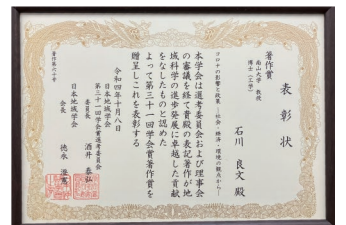 表彰状
著作賞
南山大学 教授
博士（工学）
石川 良文 殿
コロナの影響と政策 ―社会・経済・環境の観点から―
本学会は選考委員会および理事会
の審議を経て貴殿の表記著作が地
域科学の進歩発展に卓越した貢献
をなしたものと認めた
よって第三十一回学会賞著作賞を
贈呈しこれを表彰する
令和四年十月八日
日本地域学会
第三十一回学会賞選考委員会
委員長 酒井 泰弘
日本地域学会
会長 徳永 澄憲
著作第六十号